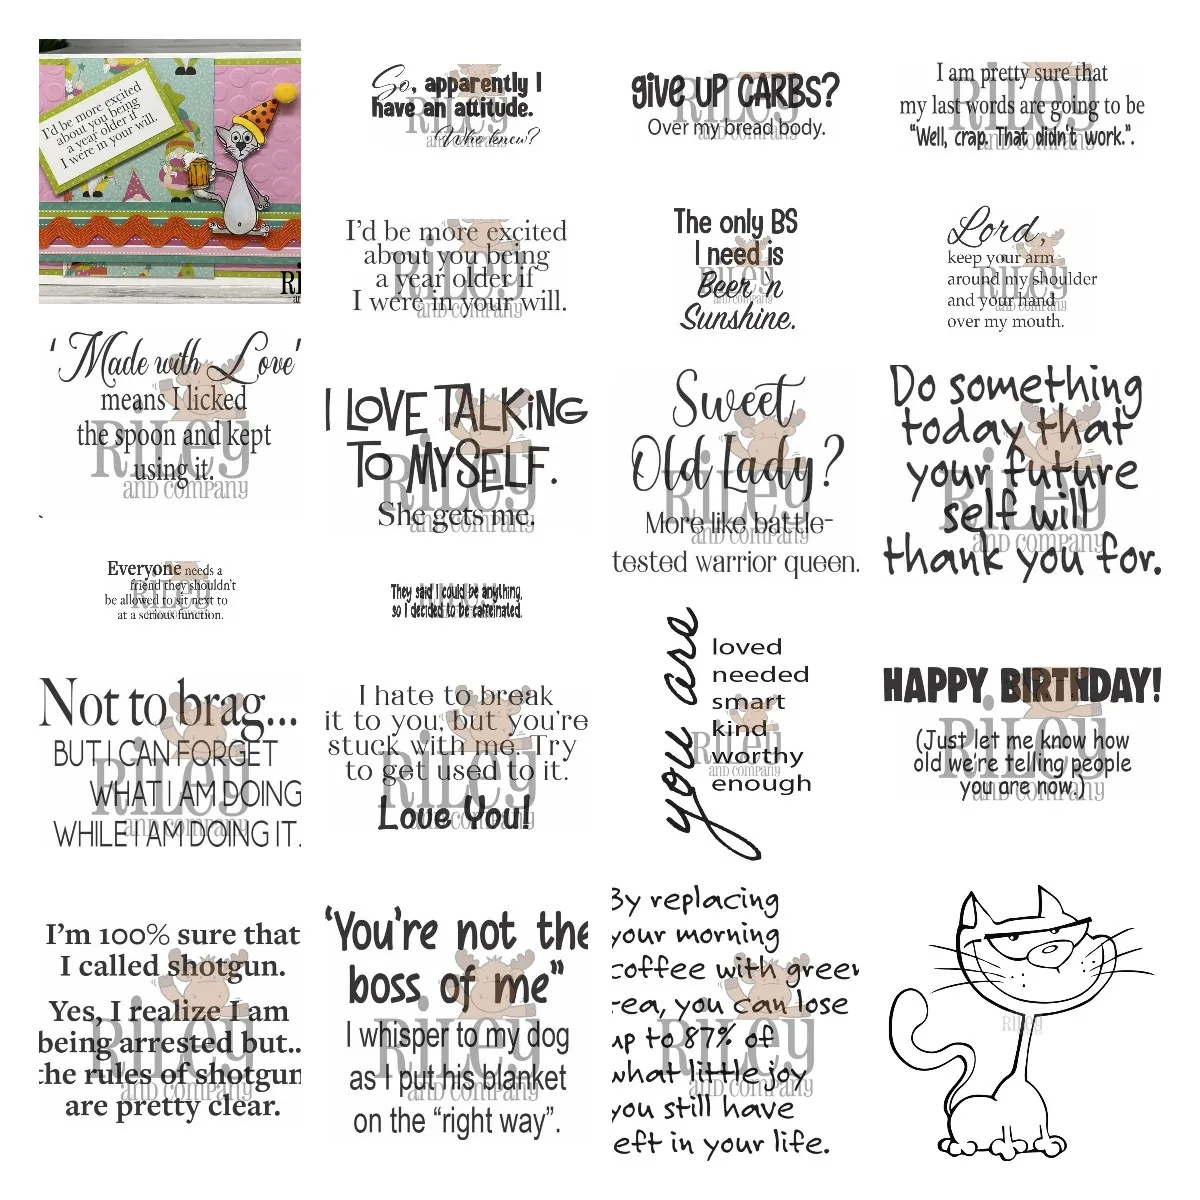 I'd be more excited
about you being
a year older if
I were in your will.
Ri
an
So, apparently I
have an attitude.
Who knew?
RiLey
AND COMPANY
give UP CARBS?
Over my bread body.
RiLey
AND COMPANY
I am pretty sure that
my last words are going to be
"Well, crap. That didn't work.".
RiLey
AND COMPANY
I'd be more excited
about you being
a year older if
I were in your will.
RiLey
AND COMPANY
The only BS
I need is
Beer 'n
Sunshine.
RiLey
AND COMPANY
Lord,
keep your arm
around my shoulder
and your hand
over my mouth.
RiLey
AND COMPANY
'Made with Love'
means I licked
the spoon and kept
using it.
RiLey
AND COMPANY
I LOVE TALKING
TO MYSELF.
She gets me.
RiLey
AND COMPANY
Sweet
Old Lady?
More like battle-
tested warrior queen.
RiLey
AND COMPANY
Do something
today that
your future
self will
thank you for.
RiLey
AND COMPANY
Everyone needs a
friend they shouldn't
be allowed to sit next to
at a serious function.
RiLey
AND COMPANY
They said I could be anything,
so I decided to be caffeinated.
you are
loved
needed
smart
kind
worthy
enough
RiLey
AND COMPANY
HAPPY BIRTHDAY!
(Just let me know how
old we're telling people
you are now.)
RiLey
AND COMPANY
Not to brag...
BUT I CAN FORGET
WHAT I AM DOING
WHILE I AM DOING IT.
RiLey
AND COMPANY
I hate to break
it to you, but you're
stuck with me. Try
to get used to it.
Love You!
RiLey
AND COMPANY
I'm 100% sure that
I called shotgun.
Yes, I realize I am
being arrested but..
the rules of shotgun
are pretty clear.
RiLey
AND COMPANY
'You're not the
boss of me"
I whisper to my dog
as I put his blanket
on the "right way".
RiLey
AND COMPANY
By replacing
your morning
coffee with green
tea, you can lose
up to 87% of
what little joy
you still have
left in your life.
RiLey
AND COMPANY
RiLey